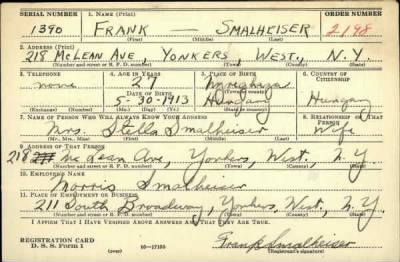 SERIAL NUMBER 1. NAME (Print) ORDER NUMBER
1390 FRANK — SMALHEISER 2198
(First) (Middle) (Last)
2. ADDRESS (Print)
218 McLEAN AVE, YONKERS, WEST., N.Y.
(Number and street or R. F. D. number) (Town) (County) (State)
3. TELEPHONE 4. AGE IN YEARS 5. PLACE OF BIRTH 6. COUNTRY OF CITIZENSHIP
none 27 Nyireghaza
DATE OF BIRTH (Town or county)
5-30-1913 Hungary Hungary
(Exchange) (Number) (Mo.) (Day) (Yr.) (State or country)
7. NAME OF PERSON WHO WILL ALWAYS KNOW YOUR ADDRESS 8. RELATIONSHIP OF THAT PERSON
Mrs. Stella Smalheiser Wife
(Mr., Mrs., Miss) (First) (Middle) (Last)
9. ADDRESS OF THAT PERSON
218 Mc Lean Ave, Yonkers, West. N.Y.
(Number and street or R. F. D. number) (Town) (County) (State)
10. EMPLOYER'S NAME
Morris Smalheiser
11. PLACE OF EMPLOYMENT OR BUSINESS
211 South Broadway, Yonkers, West, N.Y.
(Number and street or R. F. D. number) (Town) (County) (State)
I AFFIRM THAT I HAVE VERIFIED ABOVE ANSWERS AND THAT THEY ARE TRUE.
REGISTRATION CARD
D. S. S. Form 1 (over) 16—17105 Frank Smalheiser
(Registrant's signature)